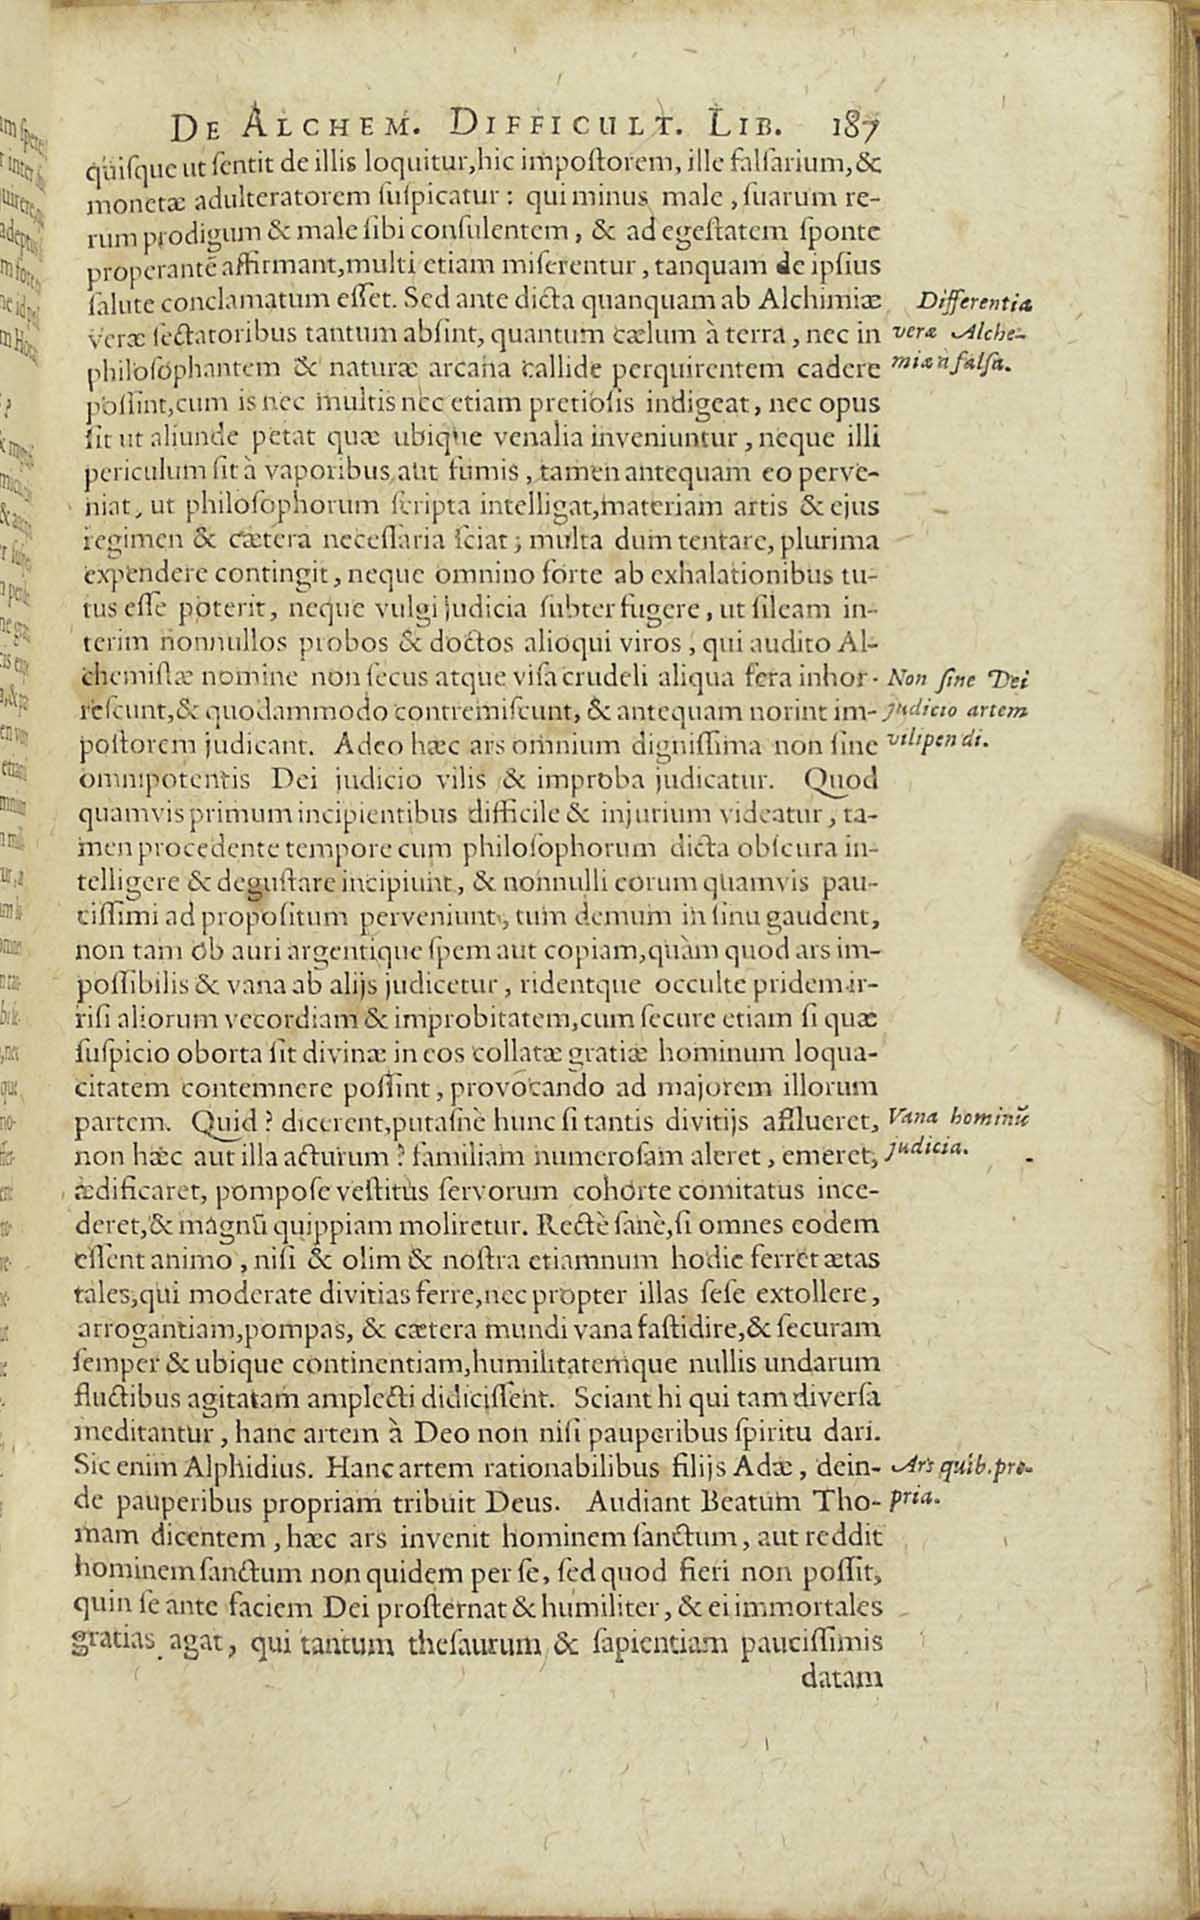 DE ALCHEM. DIFFICULT. LIB. 187
quiſque ut ſentit de illis loquitur, hic impoſtorem, ille falſarium, &
monetæ adulteratorem ſuſpicatur : qui minus male, ſuarum re-
rum prodigum & male ſibi conſulentem, & ad egeſtatem ſponte
properantẽ affirmant, multi etiam miſerentur, tanquam de ipſius
ſalute conclamatum eſſet. Sed ante dicta quanquam ab Alchimiæ
Differentia
veræ ſectatoribus tantum abſint, quantum cælum à terra, nec in
veræ Alche-
philoſophantem & naturæ arcana callide perquirentem cadere
miæ à falſa.
poſſint, cum is nec multis nec etiam pretioſis indigeat, nec opus
ſit ut aliunde petat quæ ubique venalia inveniuntur, neque illi
periculum ſit à vaporibus aut fumis, tamen antequam eo perve-
niat, ut philoſophorum ſcripta intelligat, materiam artis & ejus
regimen & cætera neceſſaria ſciat ; multa dum tentare, plurima
expendere contingit, neque omnino forte ab exhalationibus tu-
tus eſſe poterit, neque vulgi judicia ſubterfugere, ut ſileam in-
terim nonnullos probos & doctos alioqui viros, qui audito Al-
chemiſtæ nomine non ſecus atque viſa crudeli aliqua fera inhor-
Non ſine Dei
reſcunt, & quodammodo contremiſcunt, & antequam norint im-
judicio artem
poſtorem judicant. Adeo hæc ars omnium digniſſima non ſine
vilipendi.
omnipotentis Dei judicio vilis & improba judicatur. Quod
quamvis primum incipientibus difficile & injurium videatur, ta-
men procedente tempore cum philoſophorum dicta obſcura in-
telligere & deguſtare incipiunt, & nonnulli eorum quamvis pau-
ciſſimi ad propoſitum perveniunt, tum demum in ſinu gaudent,
non tam ob auri argentique ſpem aut copiam, quàm quod ars im-
poſſibilis & vana ab alijs judicetur, ridentque occulte pridem ir-
riſi aliorum vecordiam & improbitatem, cum ſecure etiam ſi quæ
ſuſpicio oborta ſit divinæ in eos collatæ gratiæ hominum loqua-
citatem contemnere poſſint, provocando ad majorem illorum
partem. Quid ? dicerent, putaſnè hunc ſi tantis divitijs afflueret,
Vana hominũ
non hæc aut illa acturum ? familiam numeroſam aleret, emeret,
judicia.
ædificaret, pompoſe veſtitus ſervorum cohorte comitatus ince-
deret, & magnũ quippiam moliretur. Rectè ſanè, ſi omnes eodem
eſſent animo, niſi & olim & noſtra etiamnum hodie ferret ætas
tales, qui moderate divitias ferre, nec propter illas ſeſe extollere,
arrogantiam, pompas, & cætera mundi vana faſtidire, & ſecuram
ſemper & ubique continentiam, humilitatemque nullis undarum
fluctibus agitatam amplecti didiciſſent. Sciant hi qui tam diverſa
meditantur, hanc artem à Deo non niſi pauperibus ſpiritu dari.
Sic enim Alphidius. Hanc artem rationabilibus filijs Adæ, dein-
Ars quib. pro-
de pauperibus propriam tribuit Deus. Audiant Beatum Tho-
pria.
mam dicentem, hæc ars invenit hominem ſanctum, aut reddit
hominem ſanctum non quidem per ſe, ſed quod fieri non poſſit,
quin ſe ante faciem Dei proſternat & humiliter, & ei immortales
gratias agat, qui tantum theſaurum & ſapientiam pauciſſimis
datam